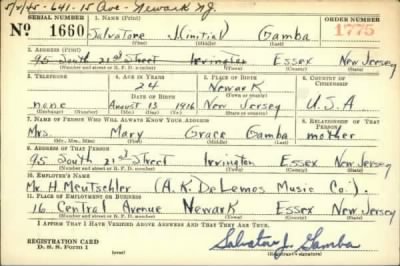 5/2/45 - 641-15 Ave - Newark NJ.
SERIAL NUMBER 1. NAME (Print) ORDER NUMBER
No 1660 Salvatore (Initial) Gamba 1775
(First) (Middle) (Last)
2. ADDRESS (Print)
95 South 21st Street Irvington Essex New Jersey
(Number and street or R. F. D. number) (Town) (County) (State)
3. TELEPHONE 4. AGE IN YEARS 5. PLACE OF BIRTH 6. COUNTRY OF CITIZENSHIP
24 Newark
DATE OF BIRTH (Town or county)
none August 13 1916 New Jersey U.S.A
(Exchange) (No.) (Mo.) (Day) (Yr.) (State or country)
7. NAME OF PERSON WHO WILL ALWAYS KNOW YOUR ADDRESS 8. RELATIONSHIP OF THAT PERSON
Mrs. Mary Grace Gamba mother
(Mr., Mrs., Miss) (First) (Middle) (Last)
9. ADDRESS OF THAT PERSON
95 South 21st Street Irvington Essex New Jersey
(Number and street or R. F. D. number) (Town) (County) (State)
10. EMPLOYER'S NAME
Mr. H. Meutschler (A. K. DeLemos Music Co.).
11. PLACE OF EMPLOYMENT OR BUSINESS
16 Central Avenue Newark Essex New Jersey
(Number and street or R. F. D. number) (Town) (County) (State)
I AFFIRM THAT I HAVE VERIFIED ABOVE ANSWERS AND THAT THEY ARE TRUE.
REGISTRATION CARD
D. S. S. Form 1
Salvatore J. Gamba
(Registrant's signature)